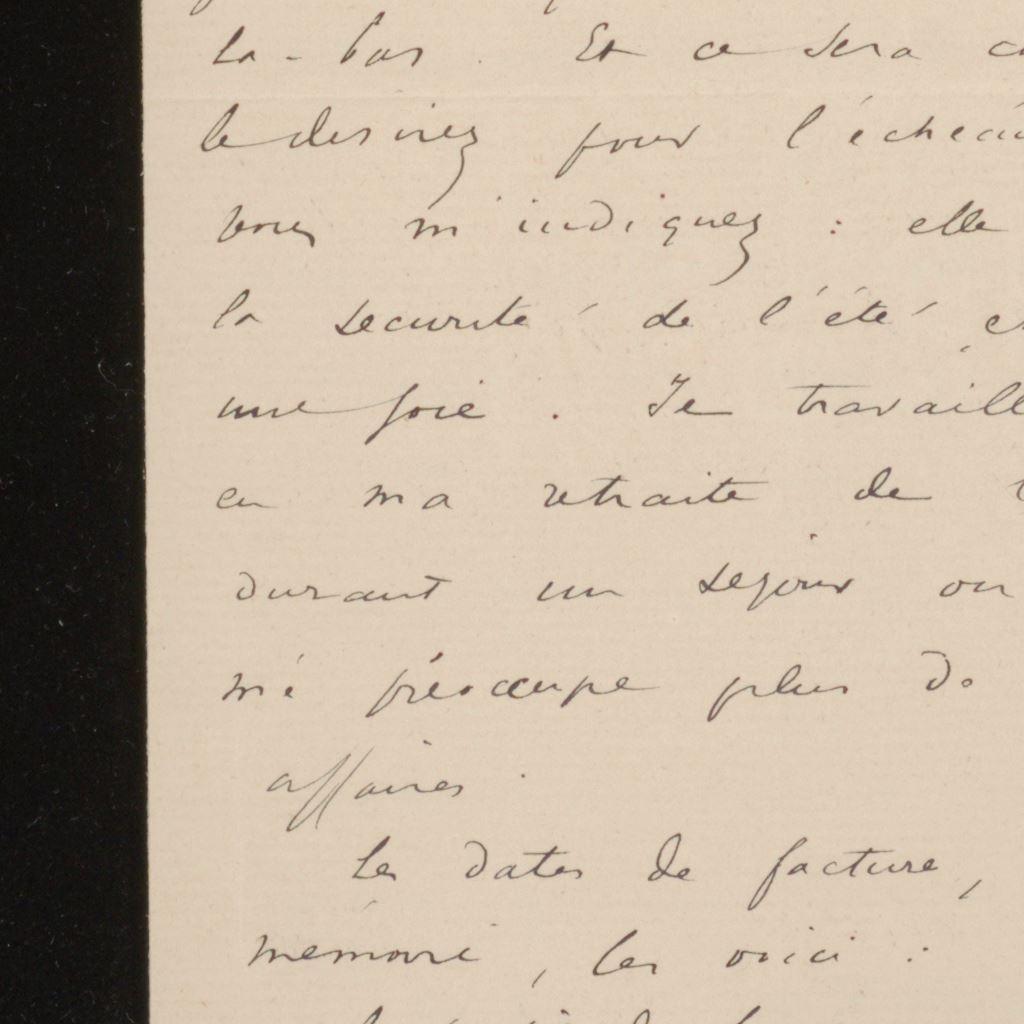 là-bas. Et ce sera
le desirez pour l'échéan
vous m'indiquez : elle
la securité de l'été
une joie. Je travaill
en ma retraite de
durant un sejour on
m'é préoccupe plus d
affaires.
Les dates de facture,
mémoire, les voici :